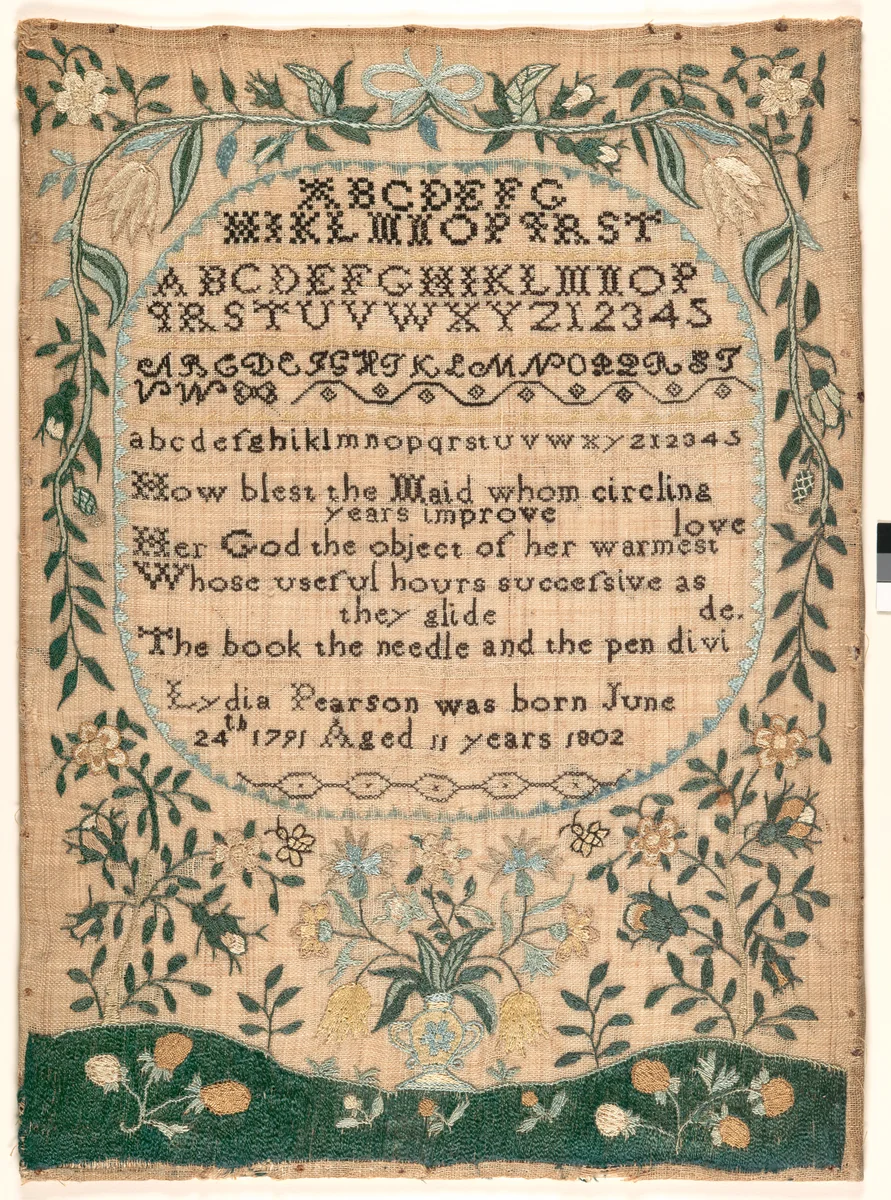 ABCDEFG
HIKLMNOPQRST
ABCDEFGHIKLMNOP
QRSTUVWXYZ12345
ABCDEFGHIKLMNOPQRST
VW
abcdefghiklmnopqrstuvwxyz12345
How blest the Maid whom circling
years improve
Her God the object of her warmest love
Whose useful hours succeſsive as
they glide
The book the needle and the pen divide.
Lydia Pearson was born June
24th 1791 Aged 11 years 1802